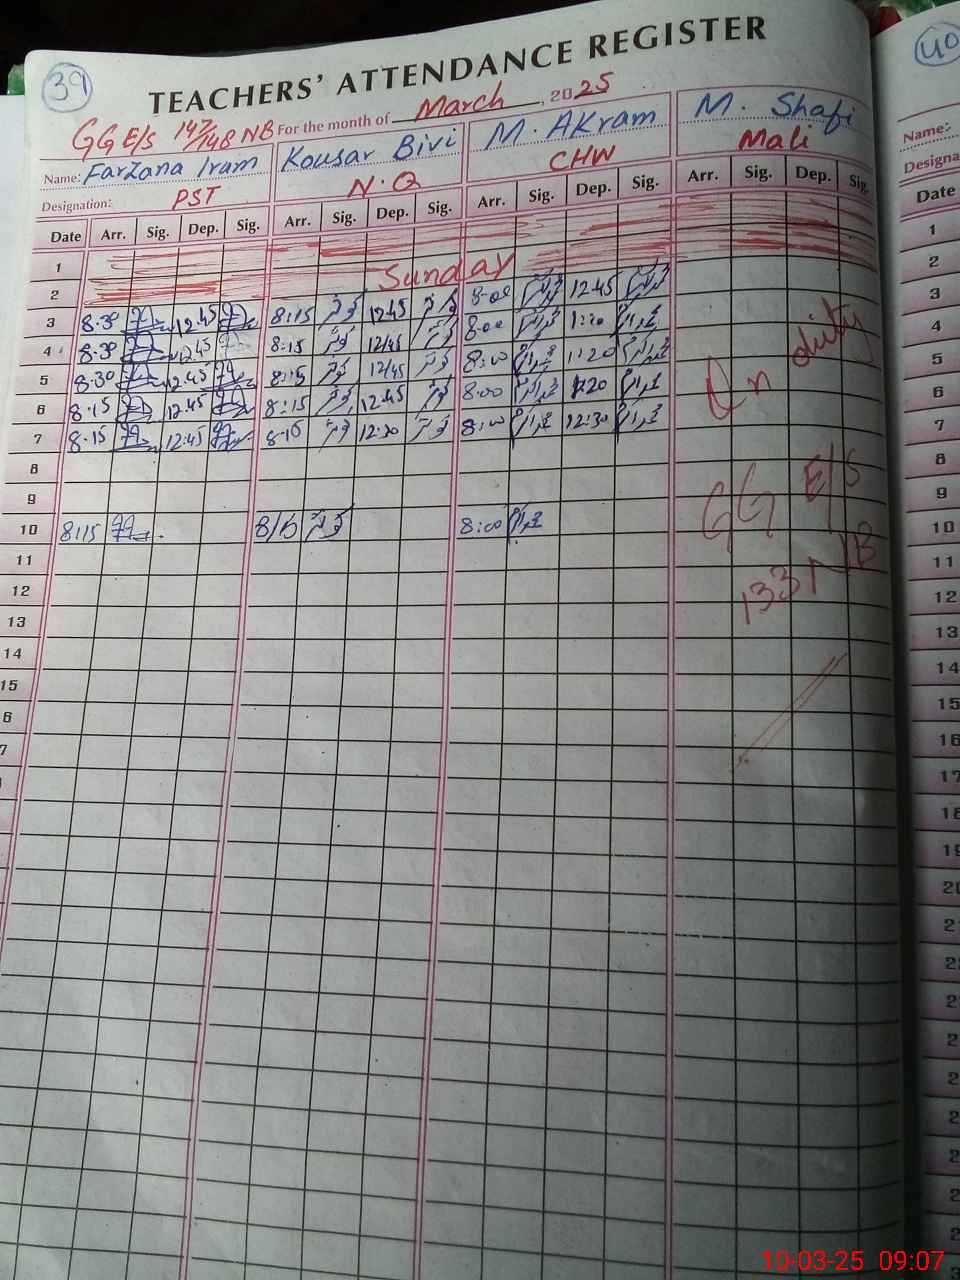 39
40
TEACHERS' ATTENDANCE REGISTER
GG E/S 147/148 NB For the month of March, 2025
Name: Farzana Iram Kousar Bivi M. AKram M. Shafi
Designation: PST N.Q CHW Mali
Date Arr. Sig. Dep. Sig. Arr. Sig. Dep. Sig. Arr. Sig. Dep. Sig. Arr. Sig. Dep. Sig.
1
2 Sunday
3 8.30 12.45 8:15 12.45 8-00 12.45
4 8.30 12.45 8:15 12/45 8-00
5 8.30 12.45 8:15 12/45 8:00 1:20
6 8.15 12.45 8:15 12.45 8:00 1:20
7 8.15 12:45 8-15 12:30 8:00 12:30
On duty
8
9
GG E/S
10 8:15 8/15 8:00
11
133 NB
12
13
14
15
6
7
Name:
Designa
Date
1
2
3
4
5
6
7
8
9
10
11
12
13
14
15
16
17
18
19
20
2
2
2
2
2
2
2
2
2
10-03-25 09:07